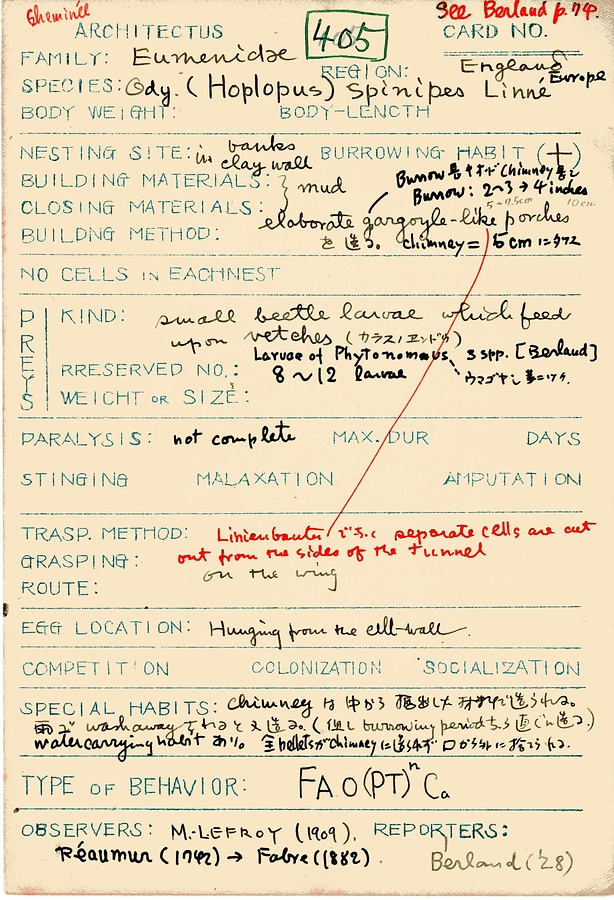 Cheminée
See Berland p.74.
ARCHITECTUS 405 CARD NO.
FAMILY: Eumenidae
REGION: England Europe
SPECIES: Ody. (Hoplopus) Spinipes Linné
BODY WEIGHT: BODY-LENGTH
NESTING SITE: in banks clay wall BURROWING HABIT (+)
BUILDING MATERIALS: } mud
Burrow: 2~3→4 inches
5~7.5cm 10cm
CLOSING MATERIALS:
elaborate gargoyle-like porches
BUILDNG METHOD: を造る. chimney = 5cm
NO CELLS IN EACHNEST
PREYS
KIND: small beetle larvae which feed
upon vetches (カラスノエンドウ)
Larvae of Phytonomus 3 spp. [Berland]
RRESERVED NO.: 8~12 larvae
WEIGHT OR SIZE:
PARALYSIS: not complete MAX. DUR DAYS
STINGING MALAXATION AMPUTATION
TRASP. METHOD: separate cells are cut
out from the sides of the tunnel
GRASPING: on the wing
ROUTE:
EGG LOCATION: Hunging from the cell-wall.
COMPETITION COLONIZATION SOCIALIZATION
SPECIAL HABITS: chimney は中から掘出した材料で造られる。
雨で washaway されると又造る。(但し burrowing period
watercarrying habit あり。
TYPE OF BEHAVIOR: FAO(PT)ⁿCa
OBSERVERS: M. LEFROY (1909). REPORTERS:
Réaumur (1742) → Fabre (1882).
Berland ('28)